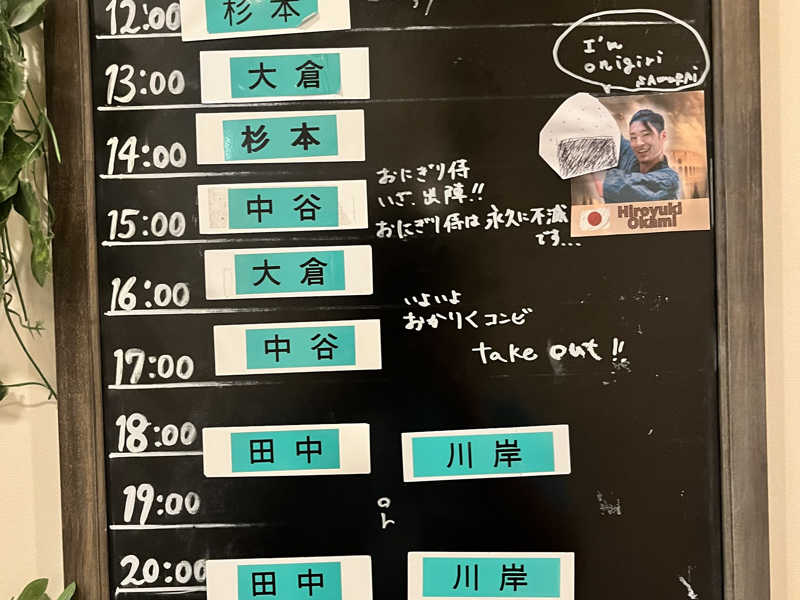 12:00 杉本
I'm
onigiri
SAMURAI
13:00 大倉
14:00 杉本
おにぎり侍
いざ、出陣!!
15:00 中谷
おにぎり侍は永久に不滅
です...
Hiroyuki
Okami
16:00 大倉
いよいよ
おかりくコンビ
take out!!
17:00 中谷
18:00 田中 川岸
19:00
or
20:00 田中 川岸